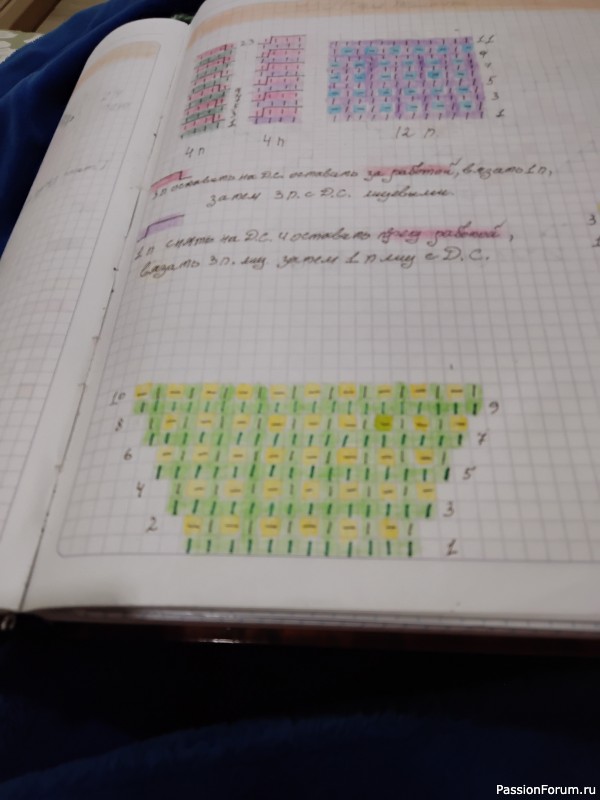 23
11
9
7
5
3
1
4 п
4 п
12 п.
3 п оставить на Д.С. оставить за работой, вязать 1 п,
затем 3 п. с Д.С. лицевыми.
1 п снять на Д.С. и оставить пред работой,
вязать 3 п. лиц затем 1 п лиц с Д.С.
3
1
10
9
8
7
6
5
4
3
2
1
PassionForum.ru